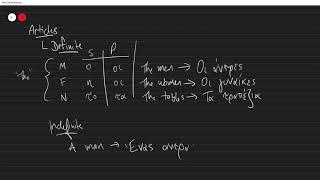 Articles
Definite
S P
"the" M ο οι The men → Οι άνερες
F η οι The women → Οι γυναίκες
N το τα The tables → Τα τραπέζια
Indefinite
A man → Ένας